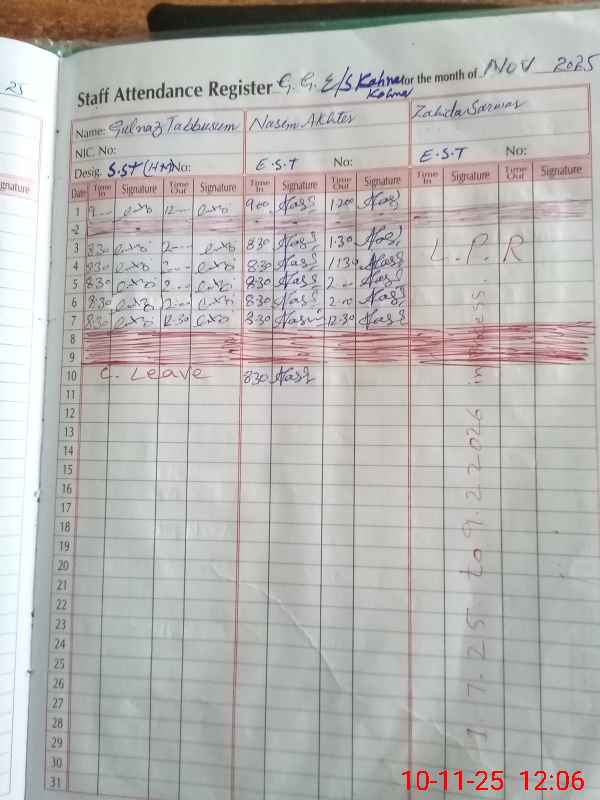 25
Staff Attendance Register G. G. E/S Kahna Kohna for the month of Nov 2025
Name: Gulnaz Tabbusum Nasim Akhter Zahda Sarwar
NIC. No:
Desig. S.ST (HM) No: E.S.T No: E.S.T No:
Date Time In Signature Time Out Signature Time In Signature Time Out Signature Time In Signature Time Out Signature
gnature
1 9 12 900 1200
2
3 830 2 830 1.30
4 830 2 830 1130
5 830 2 830 2
6 8:30 2:00 830 2-00
7 830 12:30 830 12-30
L.P.R
8
9
10 C. Leave 830
11
12
13
14
15
16
17
18
19
20
21
22
23
24
25
26
27
28
29
30
31
1.7.25 to 9.2.2026 in Process.
10-11-25 12:06